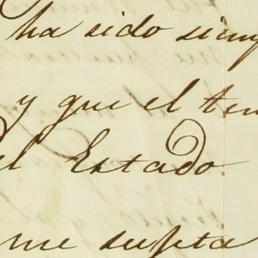 ha sido siem
y que el ten
el Estado
me sujeta